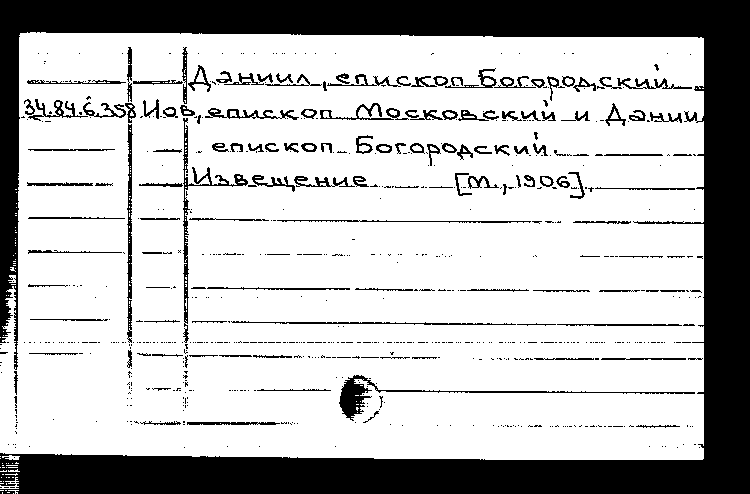 Даниил, епископ Богородский.
34.84.6.358 Иов, епископ Московский и Дании
епископ Богородский.
Извещение [М., 1906].